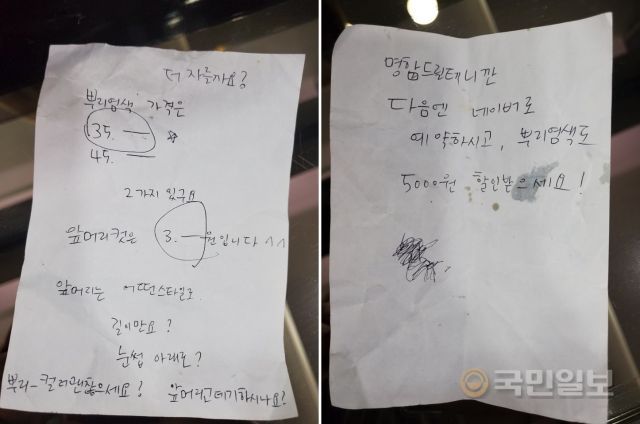 더 자를까요?
뿌리염색 가격은
35. —
45. —
2가지 있구요
앞머리컷은 3. — 원입니다 ^^
앞머리는 어떤스타일로
길이만요?
눈썹 아래로?
뿌리-컬러괜찮으세요! 앞머리고데기하시나요?
명함드릴테니깐
다음엔 네이버로
예약하시고, 뿌리염색도
5000원 할인받으세요!
국민일보